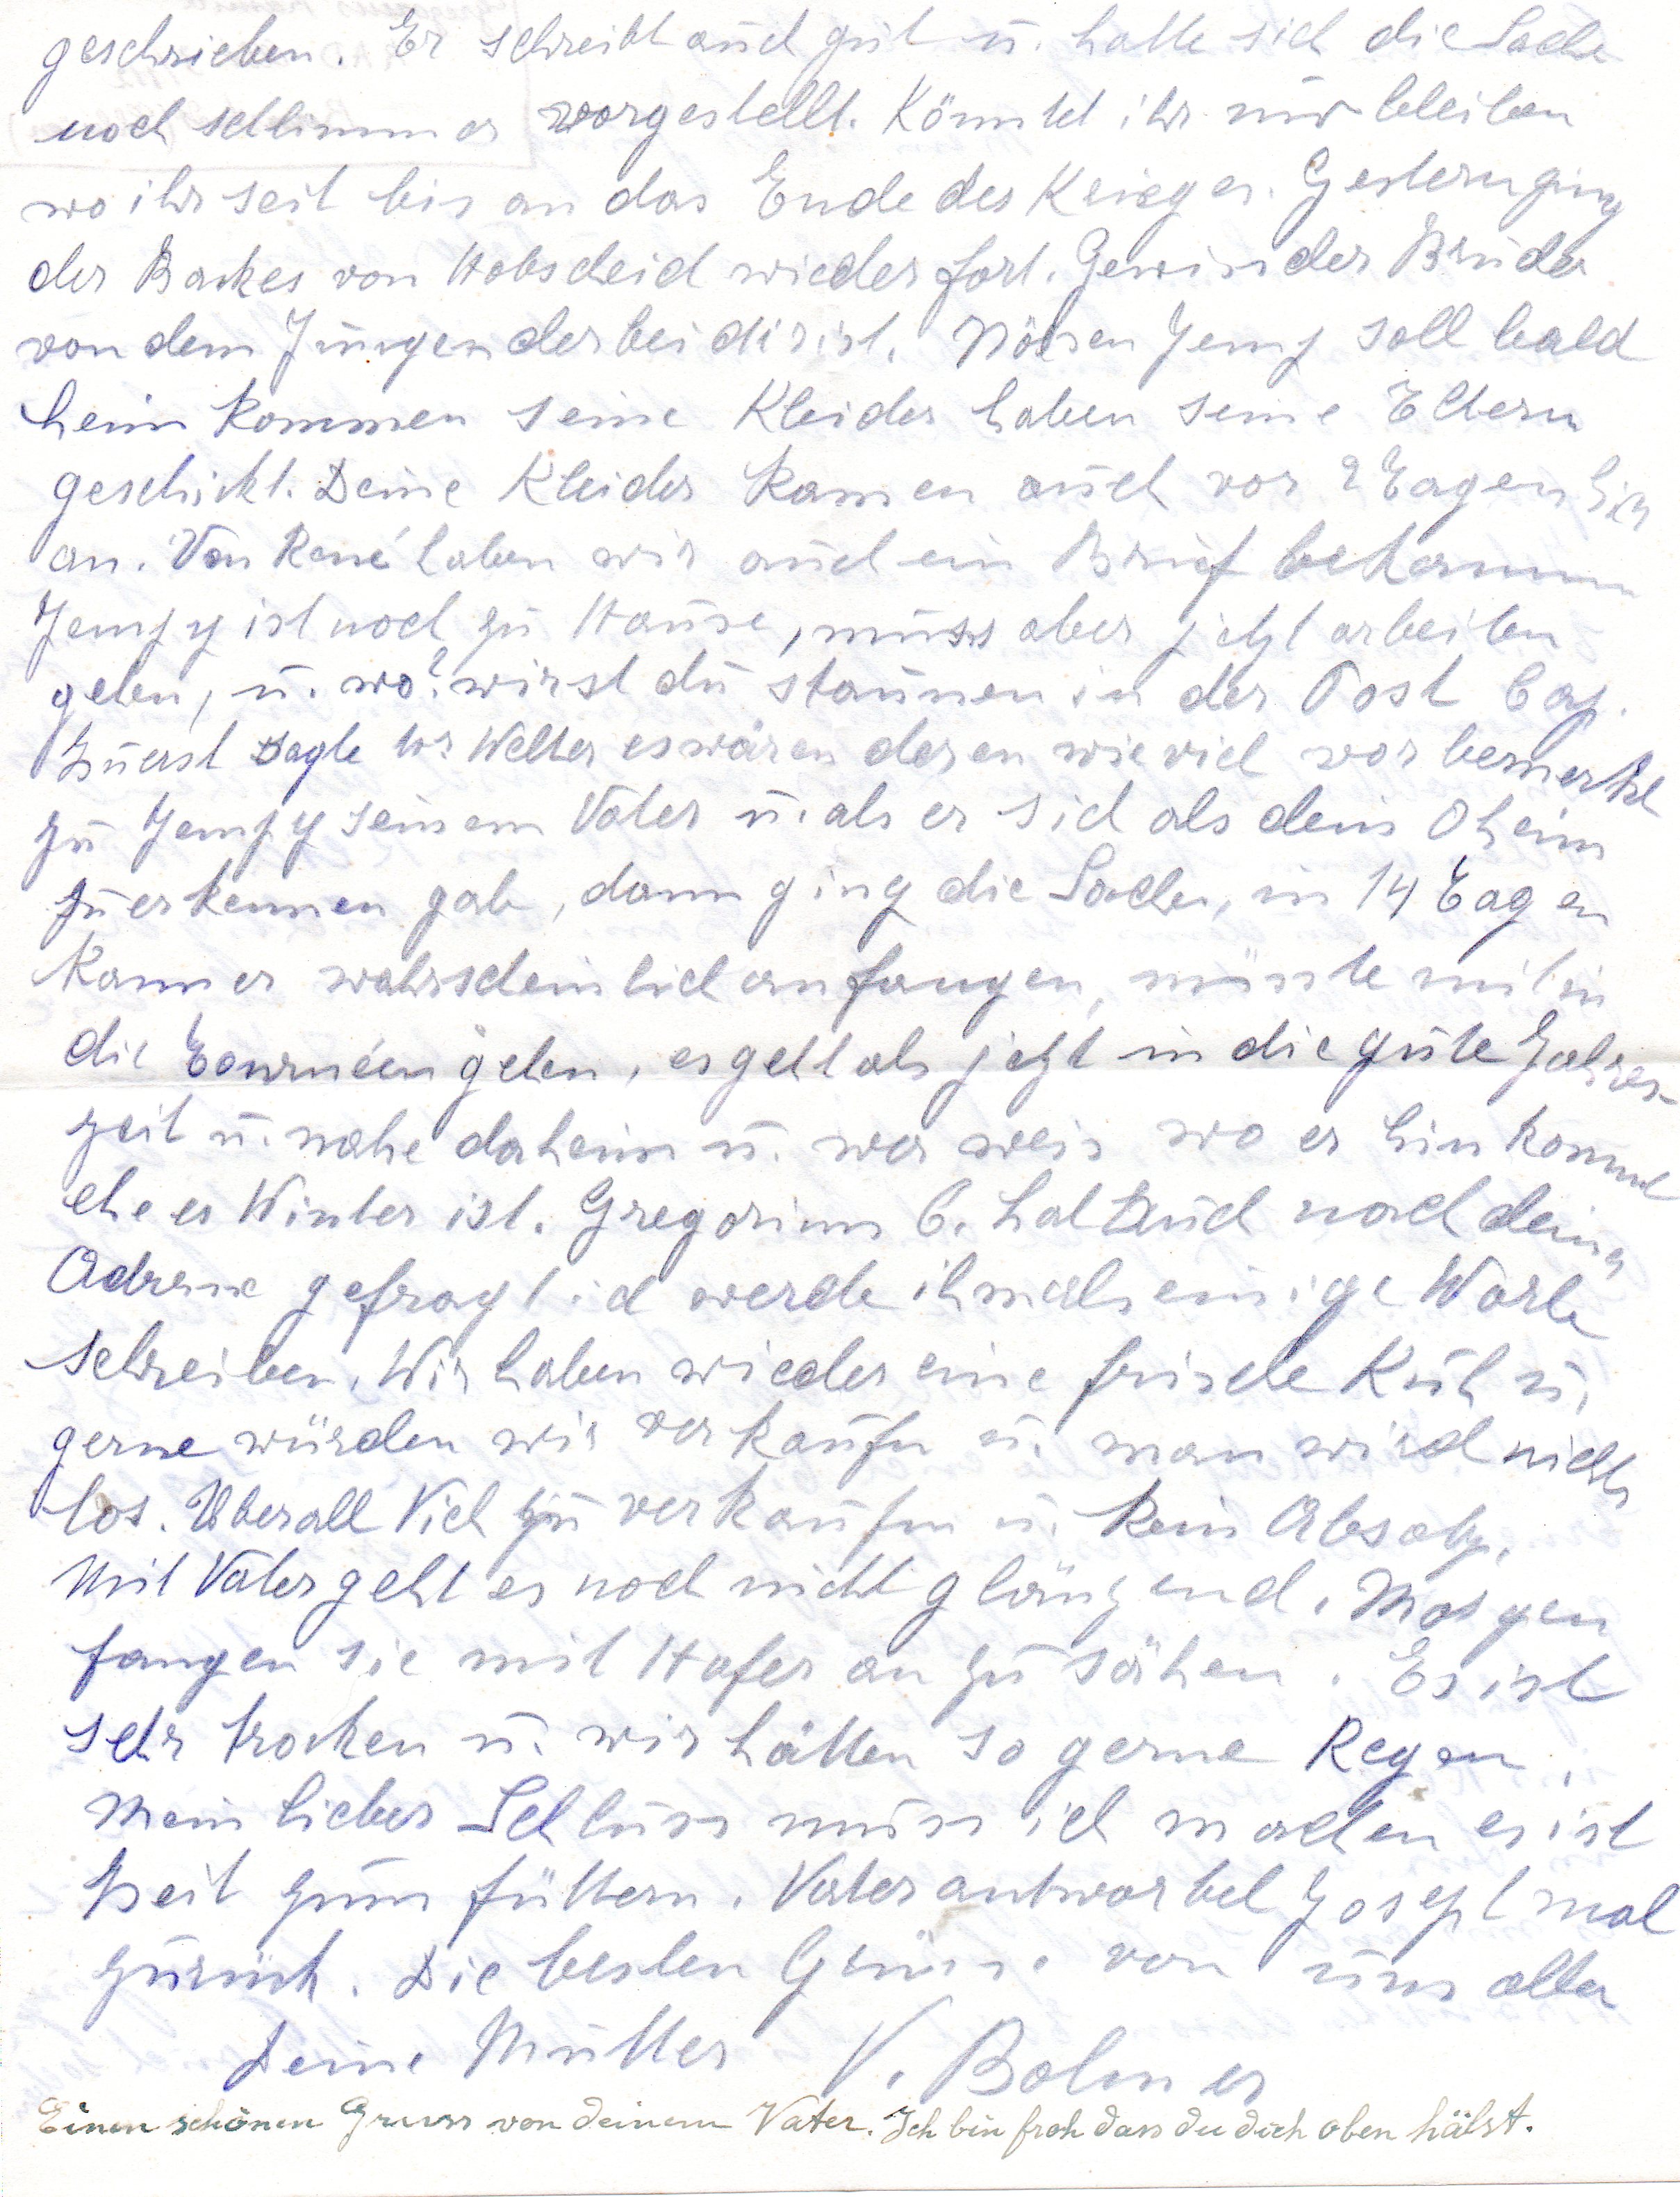 geschrieben. Er schreibt auch gut u. hatte sich die Sache
noch schlimmer vorgestellt. Könntet ihr nur bleiben
wo ihr seit bis an das Ende des Krieges. Gestern ging
der Backes von Hobscheid wieder fort. Gewis der Bruder
von dem Jungen der bei dir ist. Jemp soll bald
heim kommen seine Kleider haben seine Eltern
geschickt. Deine Kleider kamen auch vor 2 Tagen hier
an. Von René haben wir auch ein Brief bekommen
Jempy ist noch zu Hause, muss aber jetzt arbeiten
gehen, u. wo? wirst du staunen in der Post Cap.
Zuerst sagte Hr Welter es wären deren wie viel vorbemerkt
zu Jempy seinem Vater u. als er sich als dein Oheim
zu erkennen gab, dann ging die Sache, in 14 Tagen
kann er wahrscheinlich anfangen, müsste mit in
die Tournéen gehen, es geht als jetzt in die gute Jahres-
zeit u. nahe daheim u. wer weis wo er hin kommt
ehe es Winter ist. Gregorius C. hat auch nach deiner
Adresse gefragt ich werde ihm als einige Worte
schreiben. Wir haben wieder eine frische Kuh u.
gerne würden wir verkaufen u. man wird nichts
los. Überall Vieh zu verkaufen u. kein Absatz.
Mit Vater geht es noch nicht glänzend. Morgen
fangen sie mit Hafer an zu sähen. Es ist
sehr trocken u. wir hätten so gerne Regen.
Mein lieber Schluss muss ich machen es ist
Zeit zum füttern. Vater antwortet Joseph mal
zurück. Die besten Grüsse von uns allen
Deine Mutter V. Bolmer
Einen schönen Gruss von deinem Vater. Ich bin froh dass du dich oben hälst.